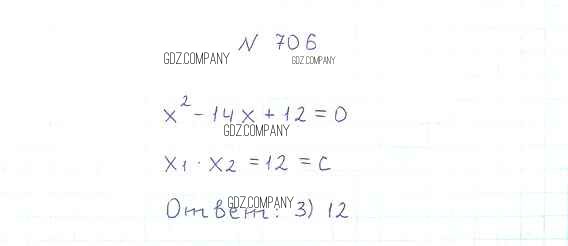 N 706
GDZ.COMPANY GDZ.COMPANY
x² - 14x + 12 = 0
GDZ.COMPANY
x₁ · x₂ = 12 = c
GDZ.COMPANY
Ответ: 3) 12